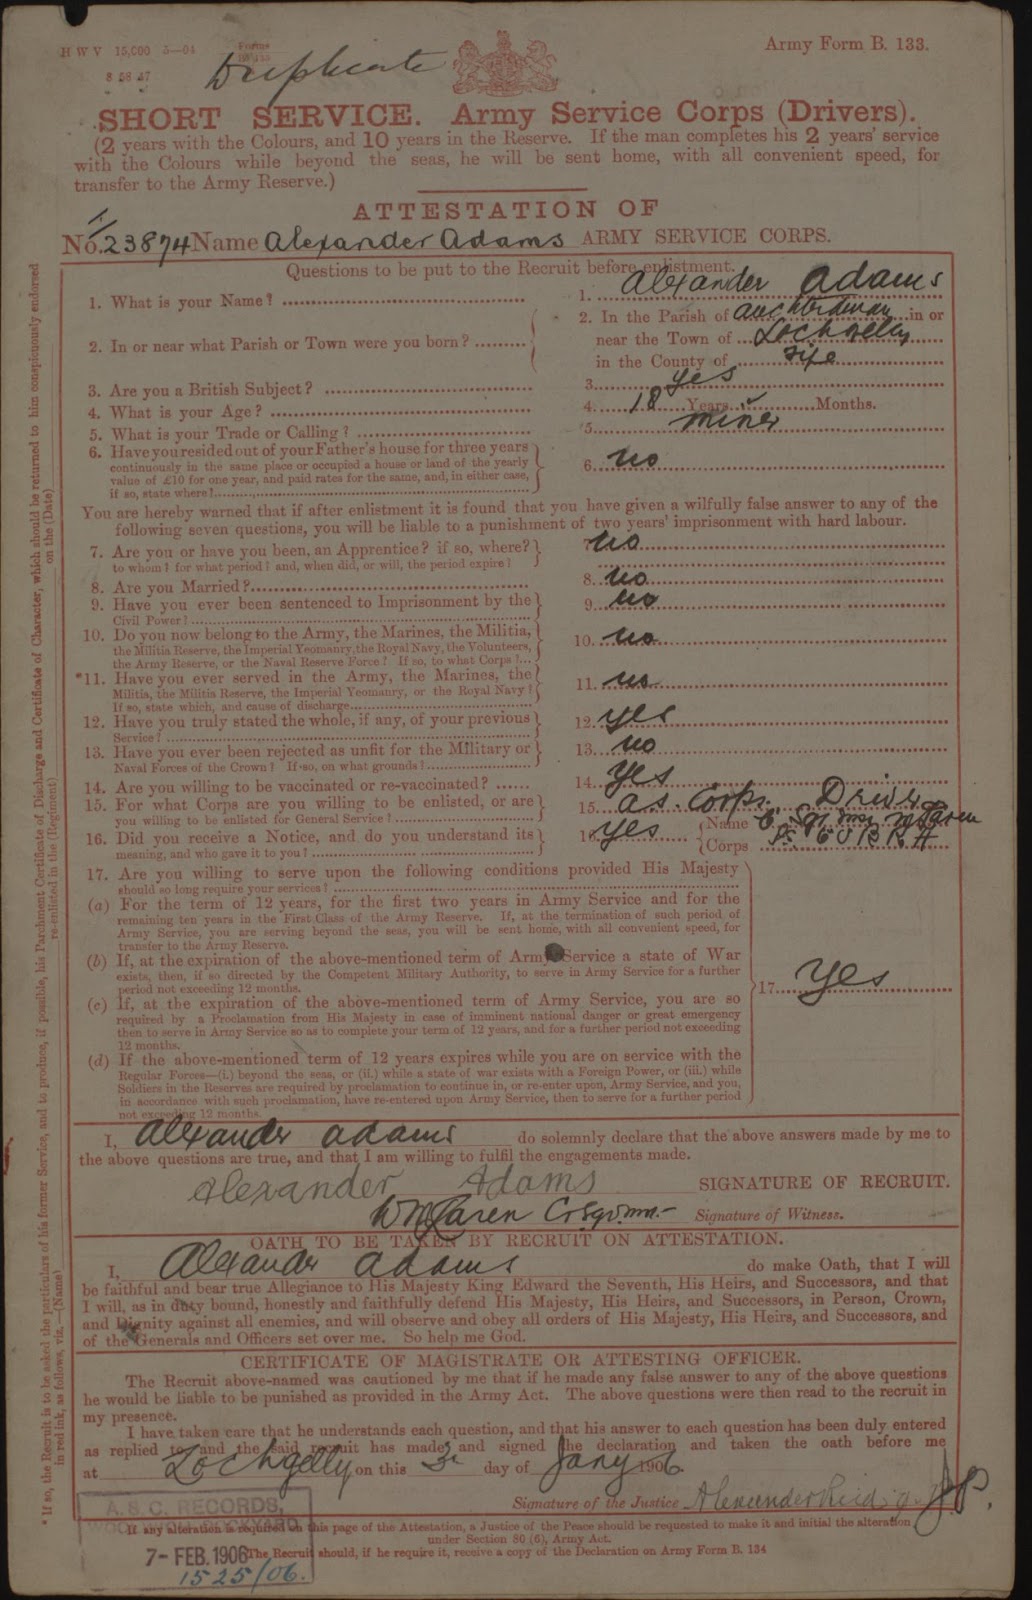 H W V 15,000 5—04 Forms
B 133
8 58 57
Duplicate
Army Form B. 133.
SHORT SERVICE. Army Service Corps (Drivers).
(2 years with the Colours, and 10 years in the Reserve. If the man completes his 2 years' service
with the Colours while beyond the seas, he will be sent home, with all convenient speed, for
transfer to the Army Reserve.)
ATTESTATION OF
No. T/23874 Name Alexander Adams ARMY SERVICE CORPS.
Questions to be put to the Recruit before enlistment.
1. What is your Name? 1. Alexander Adams
2. In or near what Parish or Town were you born? 2. In the Parish of Auchterderran in or
near the Town of Lochgelly
in the County of Fife
3. Are you a British Subject? 3. Yes
4. What is your Age? 4. 18 Years Months.
5. What is your Trade or Calling? 5. Miner
6. Have you resided out of your Father's house for three years
continuously in the same place or occupied a house or land of the yearly
value of £10 for one year, and paid rates for the same, and, in either case,
if so, state where? 6. no
You are hereby warned that if after enlistment it is found that you have given a wilfully false answer to any of the
following seven questions, you will be liable to a punishment of two years' imprisonment with hard labour.
7. Are you or have you been, an Apprentice? if so, where?
to whom? for what period? and, when did, or will, the period expire? 7. no
8. Are you Married? 8. no
9. Have you ever been sentenced to Imprisonment by the
Civil Power? 9. no
10. Do you now belong to the Army, the Marines, the Militia,
the Militia Reserve, the Imperial Yeomanry, the Royal Navy, the Volunteers,
the Army Reserve, or the Naval Reserve Force? If so, to what Corps? 10. no
*11. Have you ever served in the Army, the Marines, the
Militia, the Militia Reserve, the Imperial Yeomanry, or the Royal Navy?
If so, state which, and cause of discharge 11. no
12. Have you truly stated the whole, if any, of your previous
Service? 12. yes
13. Have you ever been rejected as unfit for the Military or
Naval Forces of the Crown? If so, on what grounds? 13. no
14. Are you willing to be vaccinated or re-vaccinated? 14. yes
15. For what Corps are you willing to be enlisted, or are
you willing to be enlisted for General Service? 15. A.S. Corps. Driver
16. Did you receive a Notice, and do you understand its
meaning, and who gave it to you? 16. yes Name McLaren
Corps
17. Are you willing to serve upon the following conditions provided His Majesty
should so long require your services?
(a) For the term of 12 years, for the first two years in Army Service and for the
remaining ten years in the First Class of the Army Reserve. If, at the termination of such period of
Army Service, you are serving beyond the seas, you will be sent home, with all convenient speed, for
transfer to the Army Reserve.
(b) If, at the expiration of the above-mentioned term of Army Service a state of War
exists, then, if so directed by the Competent Military Authority, to serve in Army Service for a further
period not exceeding 12 months.
(c) If, at the expiration of the above-mentioned term of Army Service, you are so
required by a Proclamation from His Majesty in case of imminent national danger or great emergency
then to serve in Army Service so as to complete your term of 12 years, and for a further period not exceeding
12 months.
(d) If the above-mentioned term of 12 years expires while you are on service with the
Regular Forces—(i.) beyond the seas, or (ii.) while a state of war exists with a Foreign Power, or (iii.) while
Soldiers in the Reserves are required by proclamation to continue in, or re-enter upon, Army Service, and you,
in accordance with such proclamation, have re-entered upon Army Service, then to serve for a further period
not exceeding 12 months.
17. Yes
I, Alexander Adams do solemnly declare that the above answers made by me to
the above questions are true, and that I am willing to fulfil the engagements made.
Alexander Adams SIGNATURE OF RECRUIT.
W McLaren Signature of Witness.
OATH TO BE TAKEN BY RECRUIT ON ATTESTATION.
I, Alexander Adams do make Oath, that I will
be faithful and bear true Allegiance to His Majesty King Edward the Seventh, His Heirs, and Successors, and that
I will, as in duty bound, honestly and faithfully defend His Majesty, His Heirs, and Successors, in Person, Crown,
and Dignity against all enemies, and will observe and obey all orders of His Majesty, His Heirs, and Successors, and
of the Generals and Officers set over me. So help me God.
CERTIFICATE OF MAGISTRATE OR ATTESTING OFFICER.
The Recruit above-named was cautioned by me that if he made any false answer to any of the above questions
he would be liable to be punished as provided in the Army Act. The above questions were then read to the recruit in
my presence.
I have taken care that he understands each question, and that his answer to each question has been duly entered
as replied to, and the said recruit has made and signed the declaration and taken the oath before me
at Lochgelly on this 3r day of Jany 1906
Signature of the Justice Alexander Reid J.P.
If any alteration is required on this page of the Attestation, a Justice of the Peace should be requested to make it and initial the alteration
under Section 80 (6), Army Act.
The Recruit should, if he require it, receive a copy of the Declaration on Army Form B. 134
A.S.C. RECORDS,
WOOLWICH DOCKYARD
7- FEB. 1906
1525/06.
* If so, the Recruit is to be asked the particulars of his former Service, and to produce, if possible, his Parchment Certificate of Discharge and Certificate of Character, which should be returned to him conspicuously endorsed
in red ink, as follows, viz.—(Name) re-enlisted in the (Regiment) on the (Date)